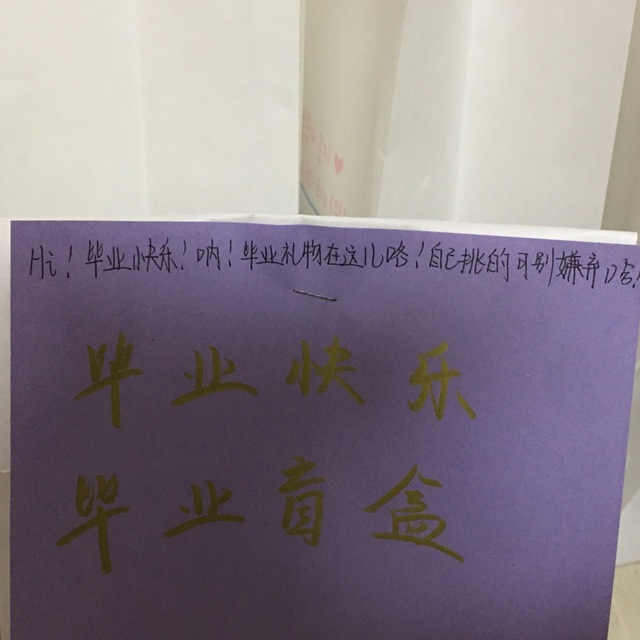 Hi！毕业快乐！呐！毕业礼物在这儿咯！自己挑的可别嫌弃
毕业快乐
毕业盲盒